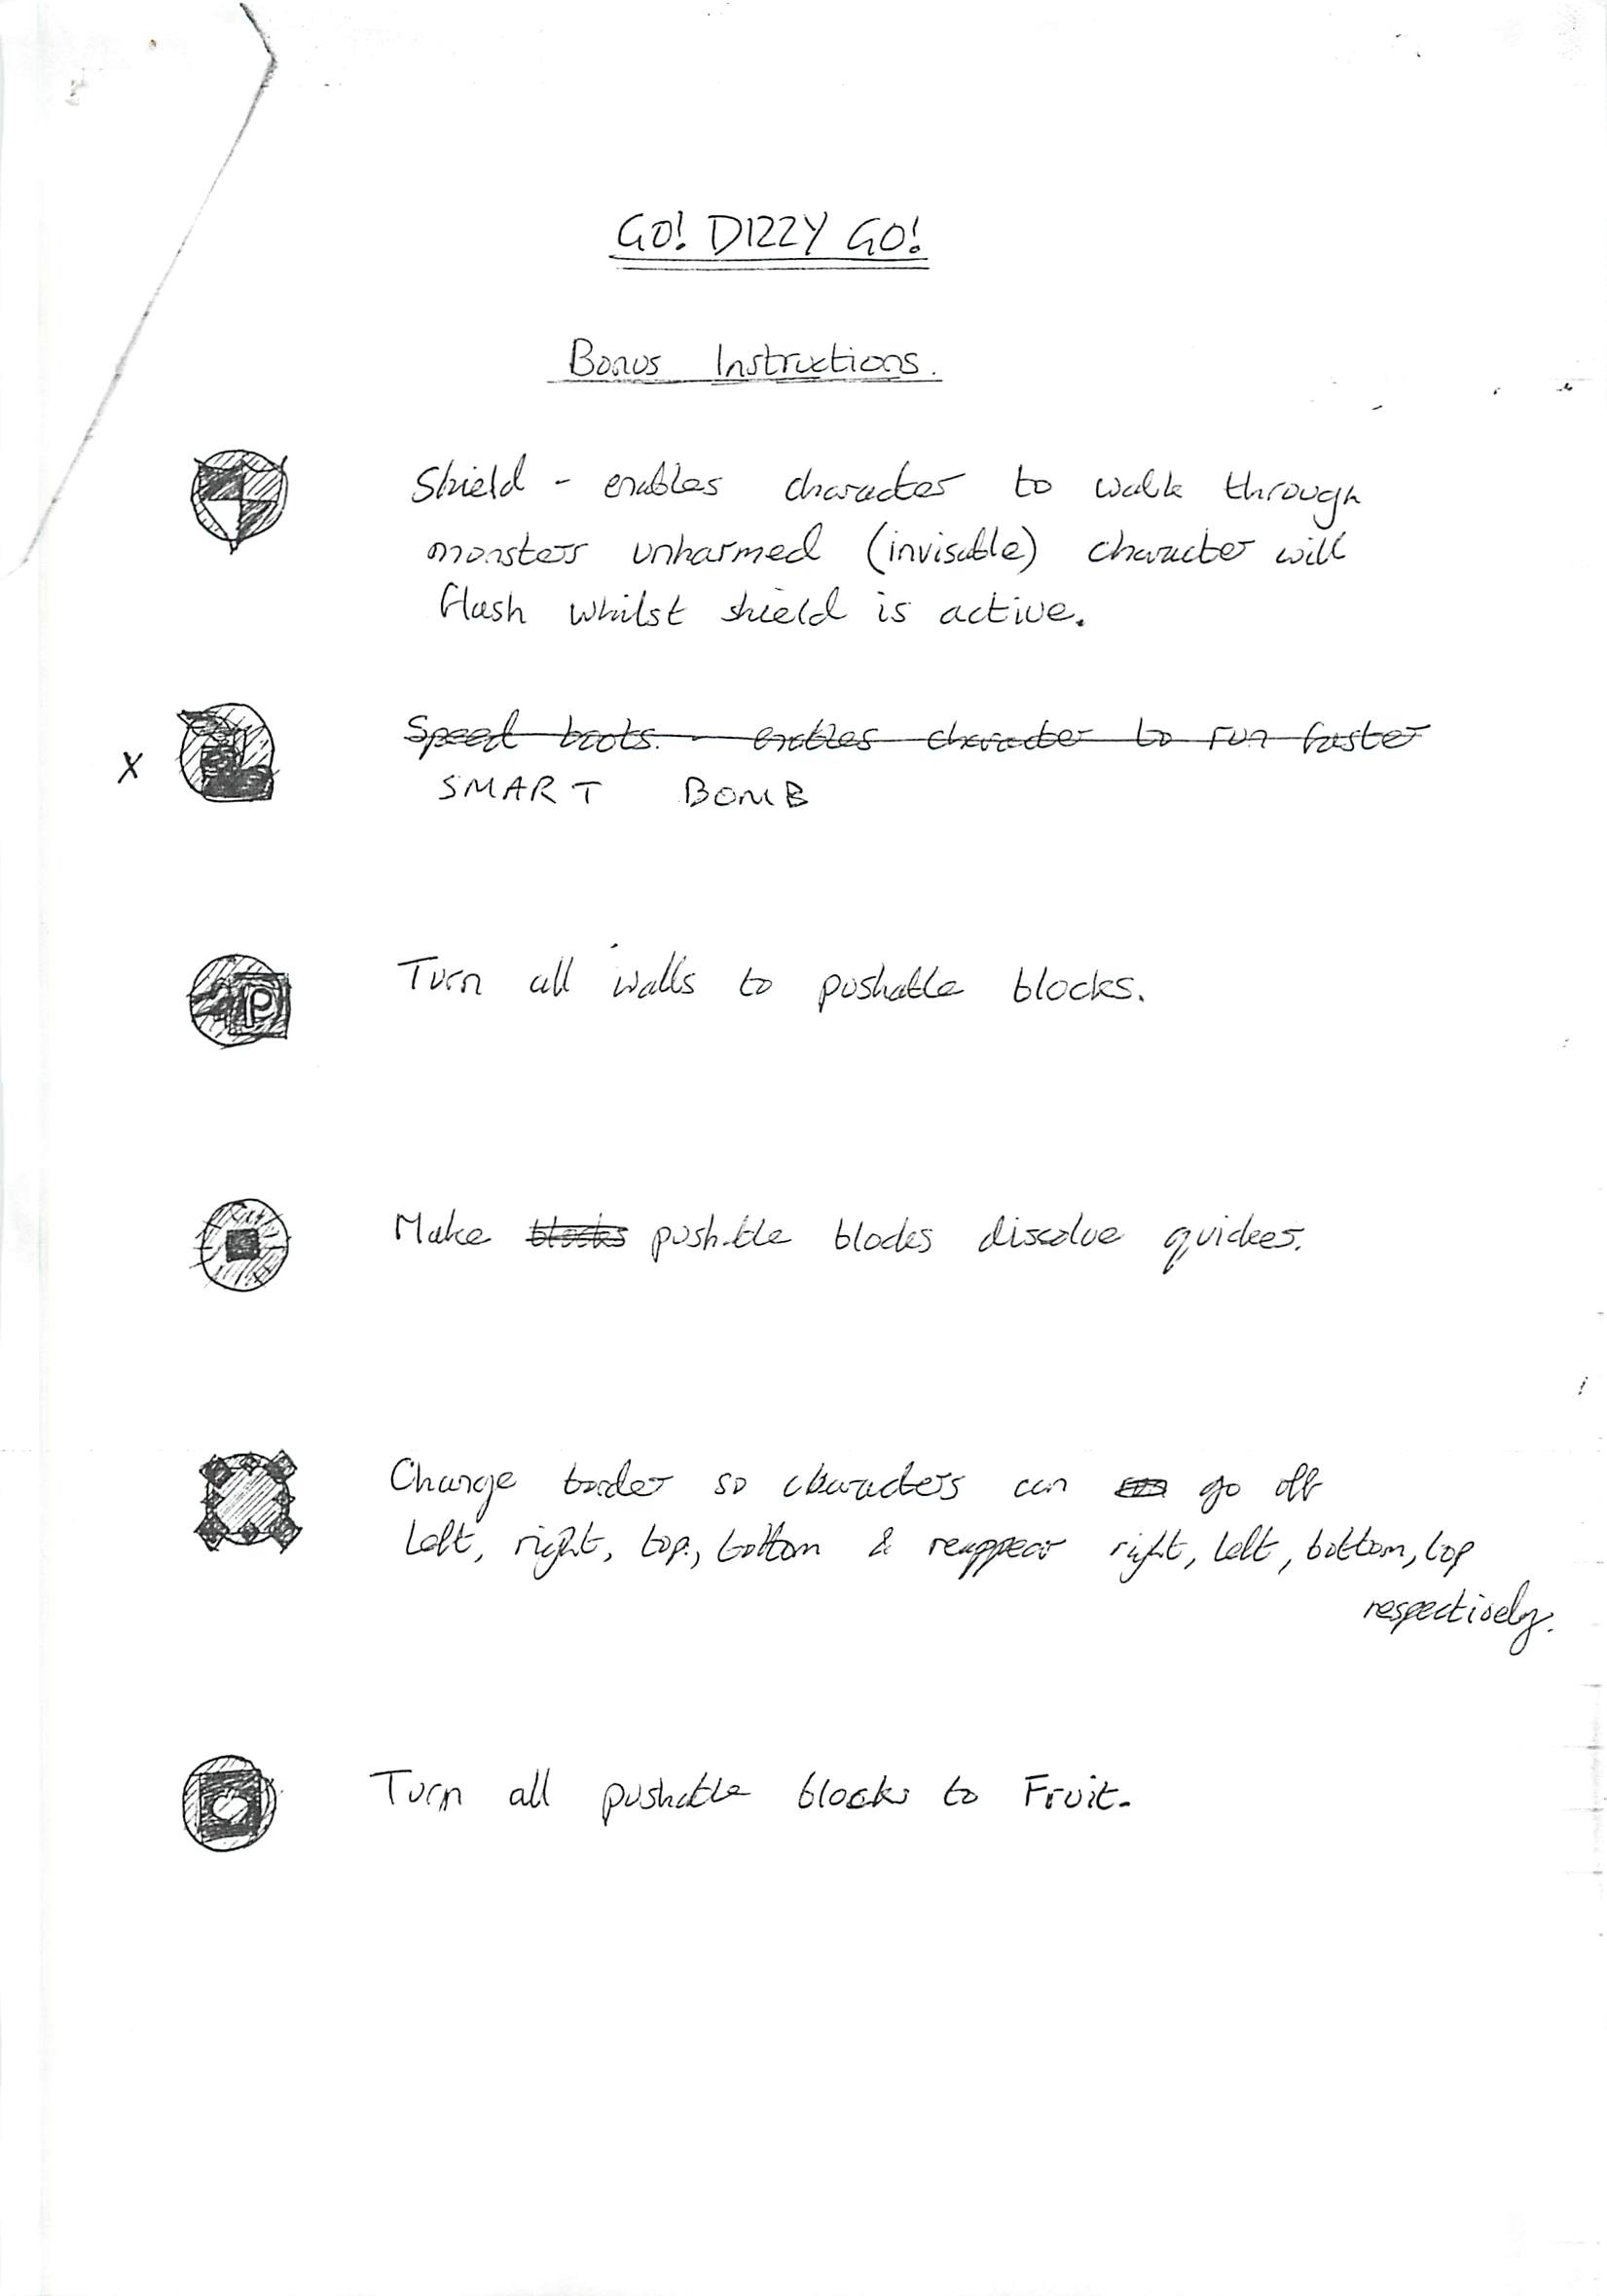 GO! DIZZY GO!
Bonus Instructions.
Shield - enables character to walk through
monsters unharmed (invisable) character will
flash whilst shield is active.
X
Speed boots. - enables character to run faster
SMART BOMB
P
Turn all walls to pushable blocks.
Make blocks pushable blocks dissolve quicker.
Change border so characters can go off
left, right, top, bottom & reappear right, left, bottom, top
respectively.
Turn all pushable blocks to Fruit.